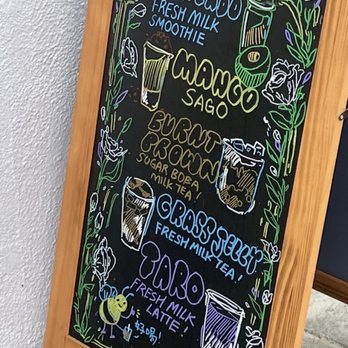 FRESH MILK
SMOOTHIE
MANGO
SAGO
BURNT
BROWN
SUGAR BOBA
MILK TEA!
GRASS JELLY
FRESH MILK TEA!
TARO
FRESH MILK
LATTE!
好喝!